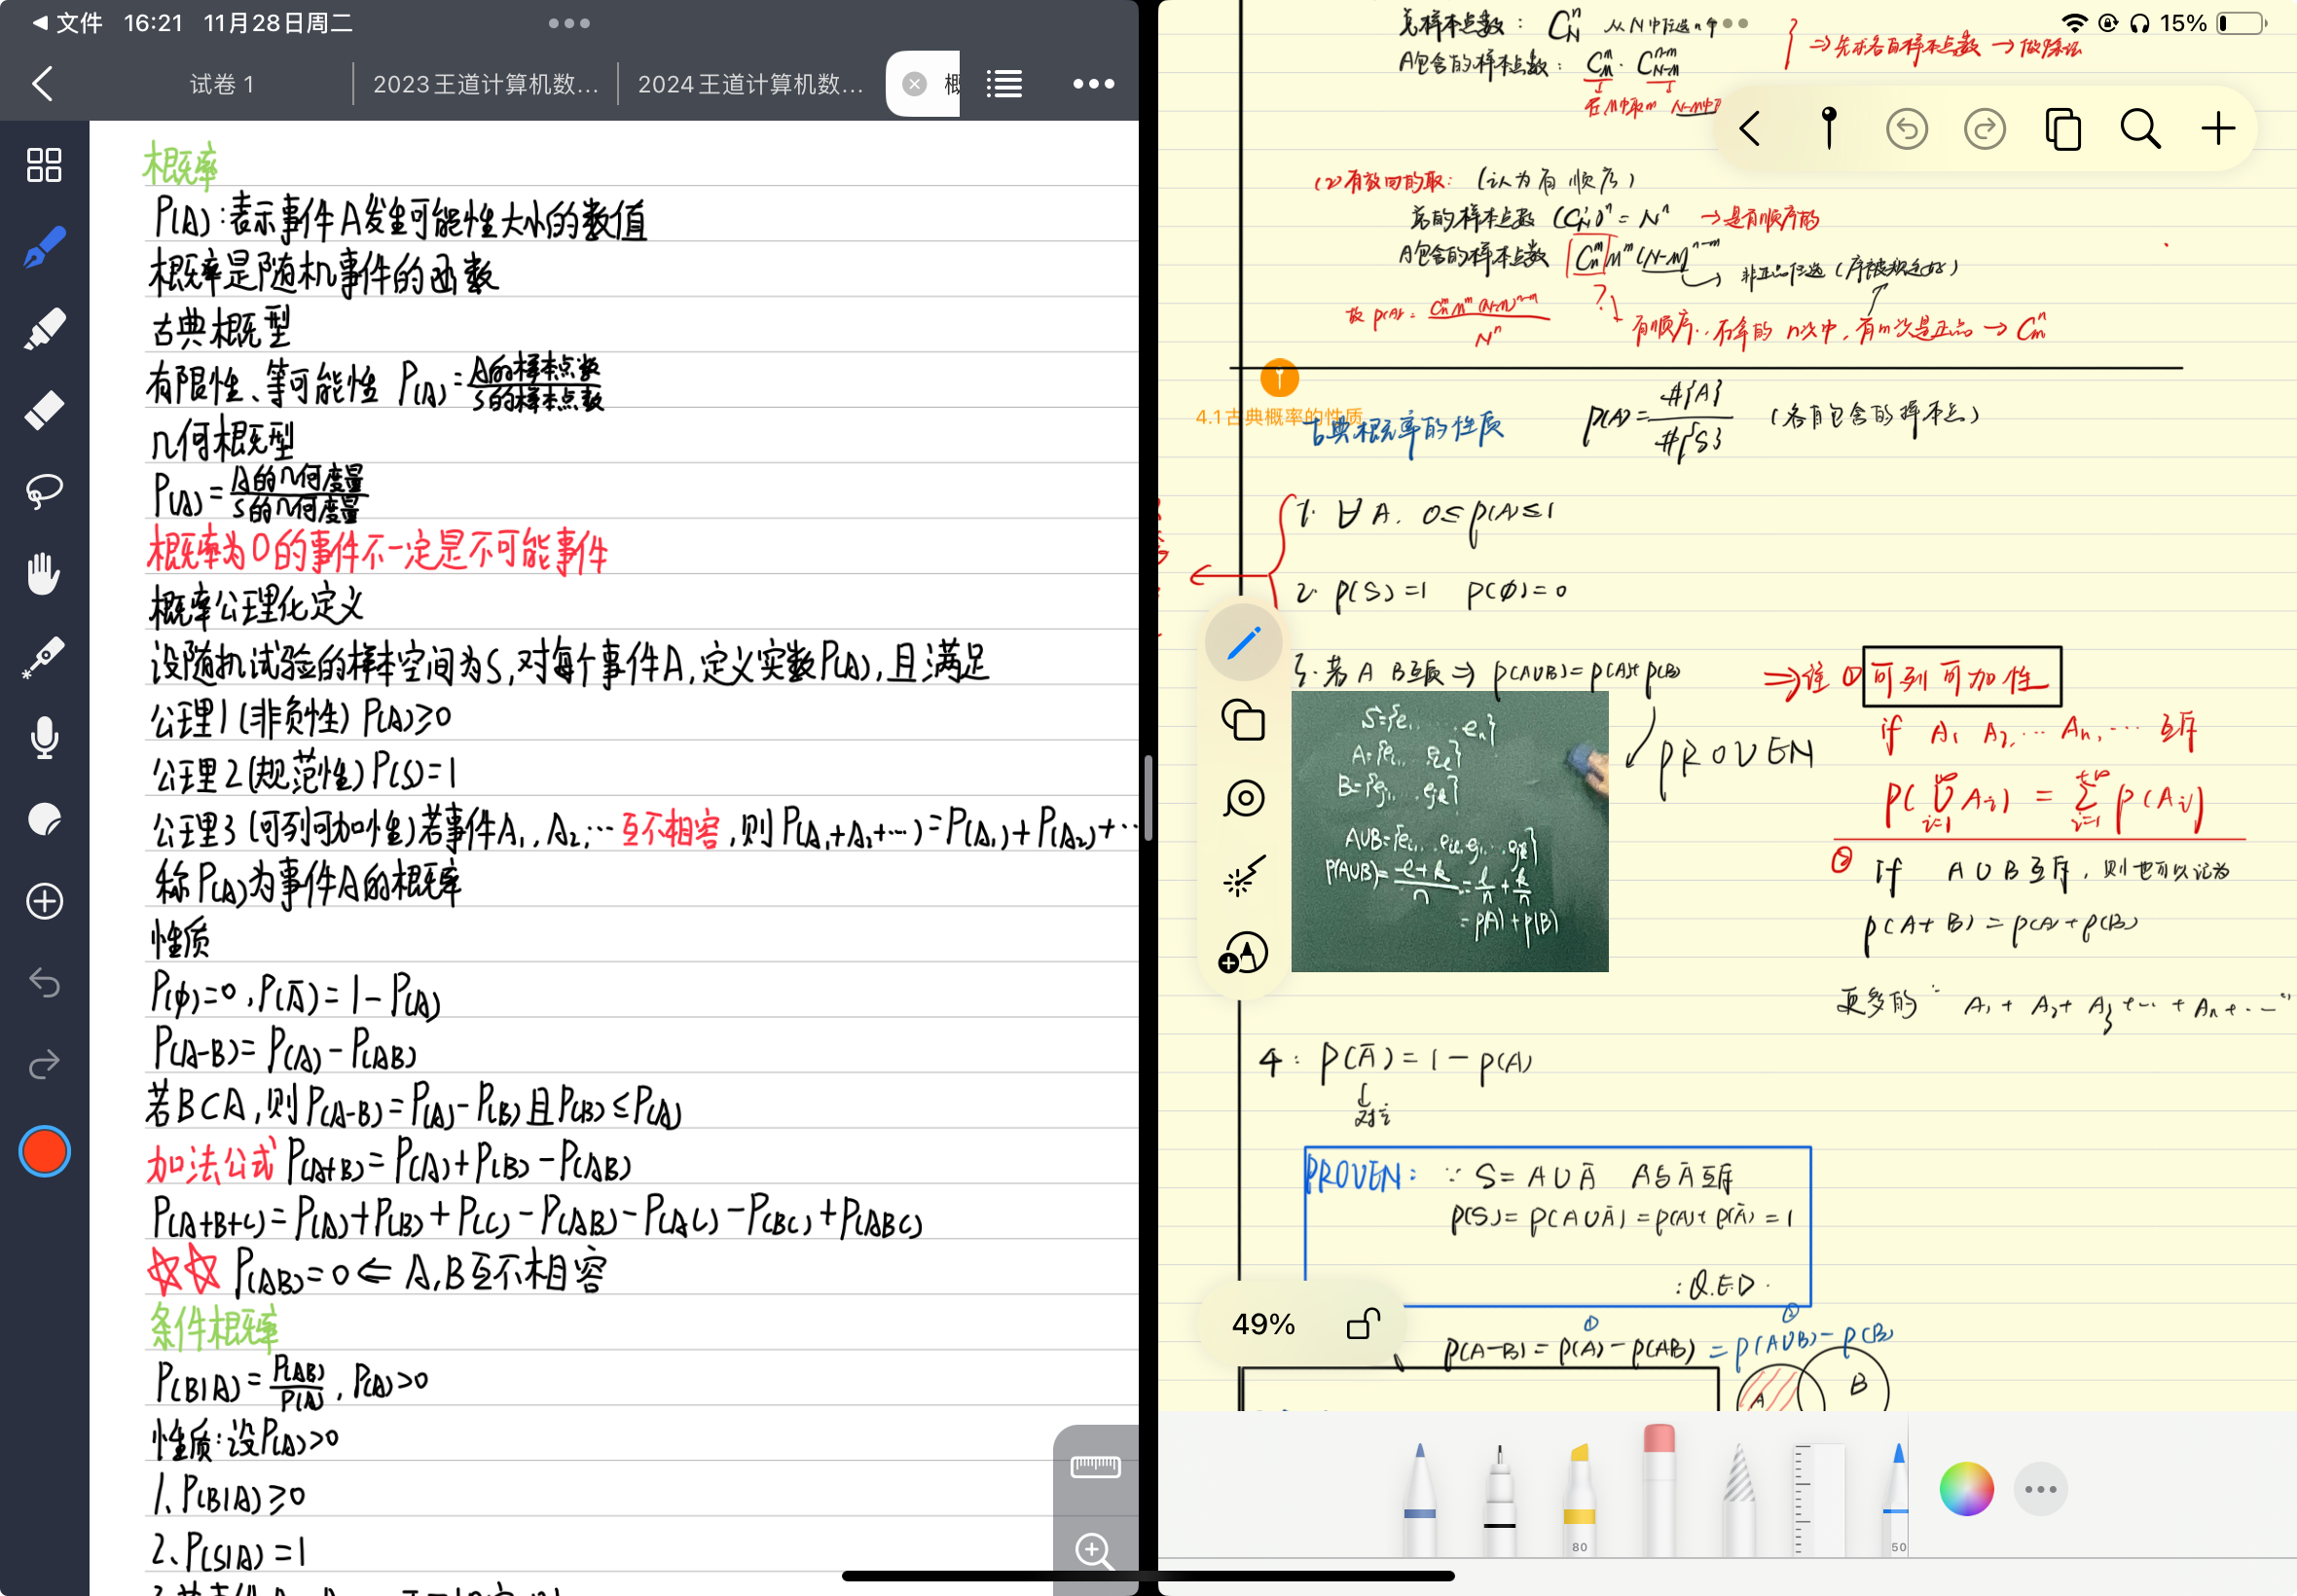 文件 16:21 11月28日周二
15%
试卷 1
2023王道计算机数...
2024王道计算机数...
概
概率
P(A):表示事件A发生可能性大小的数值
概率是随机事件的函数
古典概型
有限性、等可能性 P(A)=A的样本点数/S的样本点数
几何概型
P(A)=A的几何度量/S的几何度量
概率为0的事件不一定是不可能事件
概率公理化定义
设随机试验的样本空间为S,对每个事件A,定义实数P(A),且满足
公理1(非负性)P(A)≥0
公理2(规范性)P(S)=1
公理3(可列可加性)若事件A₁,A₂,…互不相容,则P(A₁+A₂+…)=P(A₁)+P(A₂)+…
称P(A)为事件A的概率
性质
P(φ)=0,P(Ā)=1-P(A)
P(A-B)=P(A)-P(AB)
若B⊂A,则P(A-B)=P(A)-P(B)且P(B)≤P(A)
加法公式 P(A+B)=P(A)+P(B)-P(AB)
P(A+B+C)=P(A)+P(B)+P(C)-P(AB)-P(AC)-P(BC)+P(ABC)
☆☆ P(AB)=0⇐A,B互不相容
条件概率
P(B|A)=P(AB)/P(A),P(A)>0
性质:设P(A)>0
1、P(B|A)≥0
2、P(S|A)=1
总样本点数: C_N^n 从N中任选n个
A包含的样本点数: C_M^m · C_{N-M}^{n-m}
⇒先求各自样本点数→做除法
在M中取m
(2)有放回的取: (认为有顺序)
总的样本点数 (C_N^1)^n = N^n →是有顺序的
A包含的样本点数 C_n^m M^m (N-M)^{n-m}
→ 非正品任选(序被规定好)
故 P(A)= C_n^m M^m (N-M)^{n-m} / N^n
?
有顺序∴在拿的n次中,有m次是正品→C_m^n
4.1古典概率的性质
古典概率的性质 P(A)=#{A}/#{S} (各自包含的样本点)
1. ∀A. 0≤P(A)≤1
2. P(S)=1 P(φ)=0
3. 若A B互质⇒P(A∪B)=P(A)+P(B)
⇒注①可列可加性
if A₁ A₂,… An,… 互斥
PROVEN
P(∪_{i=1}^∞ Ai) = Σ_{i=1}^{+∞} P(Ai)
S={e₁......en}
A={ei₁... eil}
B={ej₁...ejk}
A∪B={ei₁...eil,ej₁...ejk}
P(A∪B)=(l+k)/n=l/n+k/n
=P(A)+P(B)
② if A∪B互斥,则也可以记为
P(A+B)=P(A)+P(B)
更多的: A₁+A₂+A₃+…+An+…
4: P(Ā)=1-P(A)
对立
PROVEN: ∵ S=A∪Ā A与Ā互斥
P(S)=P(A∪Ā)=P(A)+P(Ā)=1
:Q.E.D.
49%
① ②
P(A-B)=P(A)-P(AB)=P(A∪B)-P(B)
A B
80
50